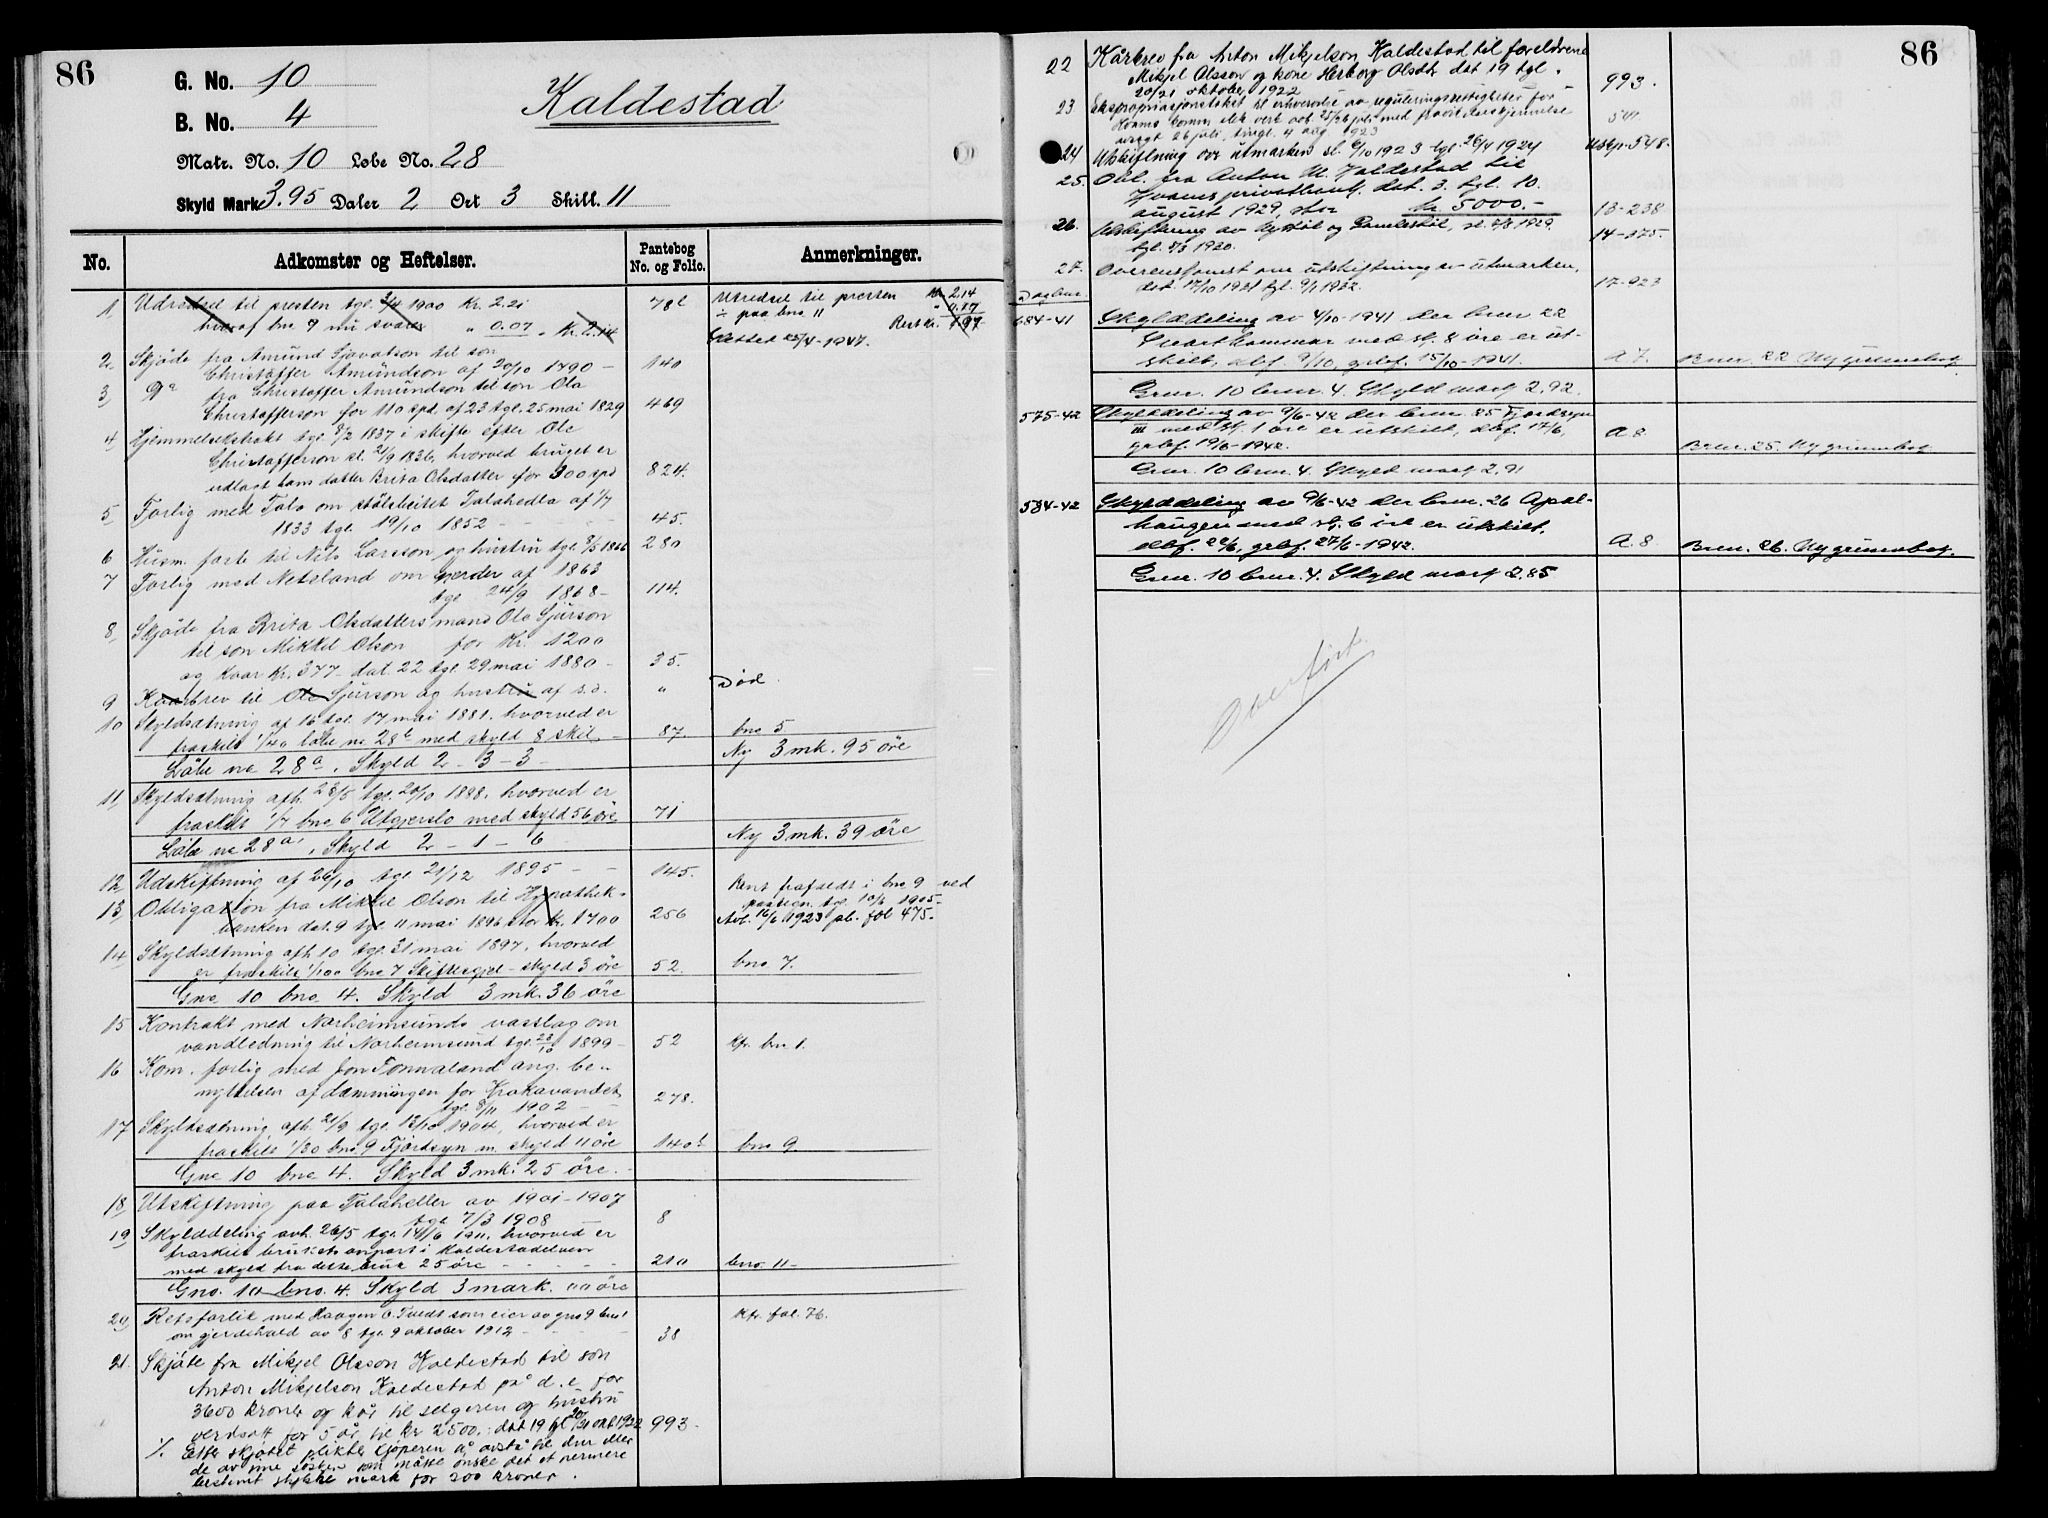 86
G. No. 10
B. No. 4
Kaldestad
Matr. No. 10 Løbe No. 28
Skyld Mark 3.95 Daler 2 Ort 3 Skill. 11
No. Adkomster og Heftelser. Pantebog No. og Folio. Anmerkninger.
1, Udredsel til presten tgl. 2/4 1900 Kr. 2.21 78b Utredsel til presten Kr. 2.14
hvoraf bno 9 nu svarer " 0.07 . Kr. 2.14 ÷ paa bno 11 " 0.17
Rest kr. 1.97
Slettet 25/4-1947.
2, Skjøde fra Amund Sjovatson til son
Christaffer Amundson af 20/10 1790 - 140
3, Do fra Christaffer Amundson til son Ola
Christafferson for 110 spd. af 23 tgl. 25 mai 1829 469
4, Hjemmelsekstrakt tgl. 8/2 1837 i skifte efter Ole
Christafferson sl. 21/9 1836, hvorved bruget er
udlagt hans datter Brita Olsdatter for 300 spd 824.
5, Forlig med Tolo om støtsbeitet Talahedla af 1/7
1833 tgl. 19/10 1852 - - - 45.
6 Husm. feste til Nils Larsson og hustru tgl. 8/5 1866 280
7 Forlig med Neteland om gjerder af 1863
tgl. 24/9 1868 - 114.
8, Skjøde fra Brita Olsdatters mand Ola Sjurson
til son Mikkel Olson for Kr. 1200
og kaar Kr. 377 - dat. 22 tgl. 29 mai 1880 - 35.
9 Kaarbrev til Ole Sjurson og hustru af s.d. " Død.
10 Skyldsætning af 16 tgl. 17 mai 1881, hvorved er
fraskilt 1/40 løbe no 28b med skyld 8 skil. - 87. bno 5
Løbe no 28a. Skyld 2 - 3 - 3 - Ny 3 mk. 95 øre
11, Skyldsætning afh. 28/5 tgl. 20/10 1888, hvorved er
fraskilt 1/7 bno 6 Utgjerslo med skyld 56 øre 71
Løbe no 28a, Skyld 2 - 1 - 6 Ny 3 mk. 39 øre
12, Udskiftning af 26/10 tgl. 21/12 1895 - - 145.
13, Obligation fra Mikkel Olson til Hypothek-
banken dat. 9 tgl. 11 mai 1896 stor Kr. 1700 256
bno 9 ved
tgl. 10/6 1905.
Avl. 16/6 1923 pb. fol 475.
14 Skyldsætning afh. 10 tgl. 31 mai 1897, hvorved
er fraskilt 1/100 bno 7 Skiftesgjel - skyld 3 øre 52. bno 7.
Gno 10 bno 4. Skyld 3 mk. 36 øre
15 Kontrakt med Norheimsunds vasslag om
vandledning til Norheimsund tgl. 23/10 1899 - 52 Kfr. bno 1.
16 Kom. forlig med Jon Tonnaland ang. be-
nyttelsen af damningen for Krokavandet
tgl. 8/11 1902 - 278.
17 Skyldsætning afh. 21/9 tgl. 12/10 1904, hvorved er
fraskilt 1/30 bno 9 Fjordsyn m. skyld 11 øre 140b bno 9
Gno 10 bno 4. Skyld 3 mk. 25 øre.
18, Utskiftning paa Talaheller av 1901-1907
tgl. 7/3 1908 8
19 Skylddeling avh. 26/5 tgl. 14/6 1911, hvorved er
fraskilt brukets anpart i Kaldestadelven
med skyld fra dette bruk 25 øre - - - - 210 bno 11 -
Gno. 10 bno. 4. Skyld 3 mark. 00 øre
20, Retsforlik med Haagen O. Tvedt som eier av gno 9 bno 1
om gjerdehold av 8 tgl. 9 oktober 1912 - - - 38 Kfr. fol. 76.
21. Skjøte fra Mikjel Olsson Kaldestad til son
Anton Mikjelson Kaldestad på d. e. for
3600 kroner og kår til selgeren og hustru
verdsatt for 5 år til kr 2500,: dat 19 tgl 20/21 okt 1922 993 -
% Etter skjøtet plikter kjøperen å avstå til den eller
de av sine søsken som måtte ønske det et nermere
bestemt stykke mark for 200 kroner.
86
22 Kårbrev fra Anton Mikjelson Kaldestad til foreldrene
Mikjel Olsson og kone Herborg Olsdtr dat 19 tgl.
20/21 oktober 1922 993.
23 Ekspropriasjonstakst til erhvervelse av reguleringsrettigheter for
Kvams komm. elek. verk avh. 25/26 juli med
26 juli, tingl. 4 aug 1923 541
24 Utskiftning over utmarken sl. 6/10 1923 tgl. 26/4 1924 Utskp. 548.
25. Obl. fra Anton M. Kaldestad til
Kvams privatbank, dat. 3. tgl. 10.
august 1929, stor kr 5000.- 13-238
26. Utskiftning av Nystøl og Gamlestøl, sl. 2/8 1929
tgl. 8/3 1930. 14-375.
27. Overenskomst om utskiftning av utmarken,
dat. 17/10 1931 tgl. 9/1 1932. 17-923
Dagbnr.
684-41 Skylddeling av 4/10-1941 der bnr 22
Svarthammar med sk. 8 øre er ut-
skilt, dbf. 9/10, grbf. 15/10-1941. A 7. Bnr. 22 Ny grunnbok
Gnr. 10 bnr. 4. Skyld mark 2,92.
575-42 Skylddeling av 9/6-42 der bnr. 25 Fjordsyn
III med sk. 1 øre er utskilt, dbf. 17/6,
grbf. 19/6-1942. A 8. Bnr. 25. Ny grunnbok
Gnr. 10 bnr. 4. Skyld mark 2.91
584-42 Skylddeling av 9/6-42 der bnr. 26 Apal-
haugen med sk. 6 øre er utskilt.
dbf. 22/6, grbf. 27/6-1942. A. 8 Bnr. 26. Ny grunnbok.
Gnr. 10 bnr. 4. Skyld mark 2.85
Overført.